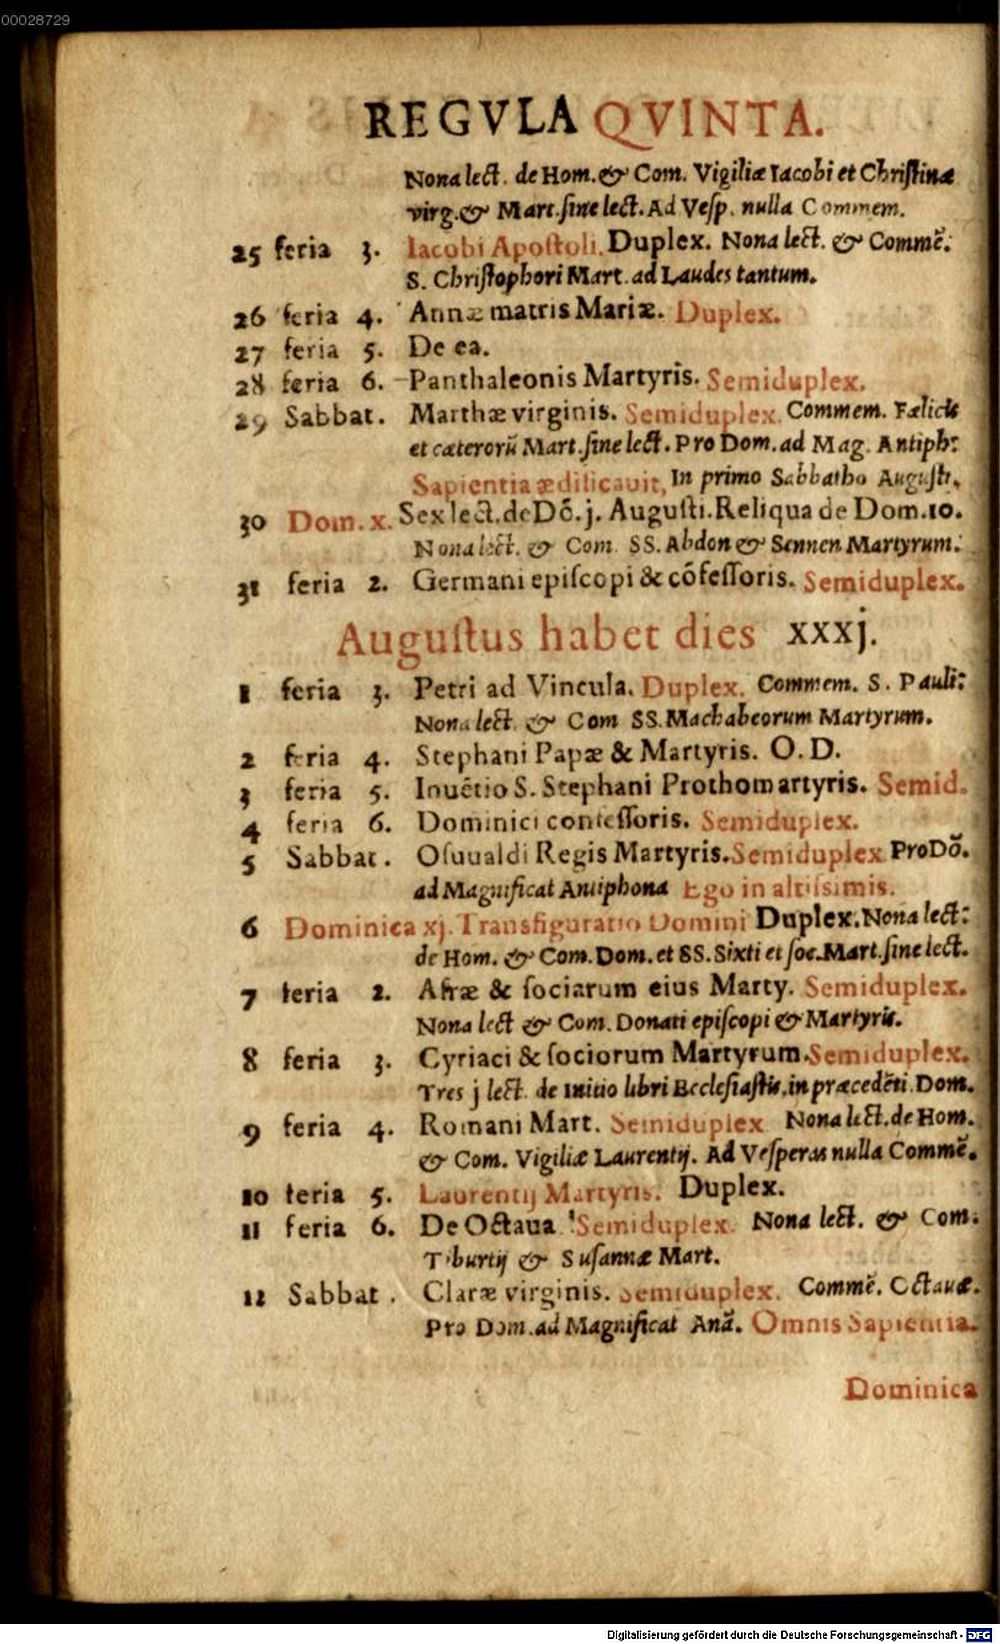 00028729
REGVLA QVINTA.
Nona lect. de Hom. & Com. Vigiliæ Iacobi et Christinæ
virg. & Mart. sine lect. Ad Vesp. nulla Commem.
25 feria 3. Iacobi Apostoli. Duplex. Nona lect. & Commē.
S. Christophori Mart. ad Laudes tantum.
26 feria 4. Annæ matris Mariæ. Duplex.
27 feria 5. De ea.
28 feria 6. Panthaleonis Martyris. Semiduplex.
29 Sabbat. Marthæ virginis. Semiduplex. Commem. Fælicis
et cæterorū Mart. sine lect. Pro Dom. ad Mag. Antiph:
Sapientia ædificauit, In primo Sabbatho Augusti.
30 Dom. x. Sex lect. de Dō. j. Augusti. Reliqua de Dom. 10.
Nona lect. & Com. SS. Abdon & Sennen Martyrum.
31 feria 2. Germani episcopi & cōfessoris. Semiduplex.
Augustus habet dies xxxj.
1 feria 3. Petri ad Vincula. Duplex. Commem. S. Pauli:
Nona lect. & Com SS. Machabeorum Martyrum.
2 feria 4. Stephani Papæ & Martyris. O. D.
3 feria 5. Inuētio S. Stephani Prothomartyris. Semid.
4 feria 6. Dominici confessoris. Semiduplex.
5 Sabbat. Osuualdi Regis Martyris. Semiduplex Pro Dō.
ad Magnificat Antiphona Ego in altissimis.
6 Dominica xj. Transfiguratio Domini Duplex. Nona lect:
de Hom. & Com. Dom. et SS. Sixti et soc. Mart. sine lect.
7 feria 2. Afræ & sociarum eius Marty. Semiduplex.
Nona lect & Com. Donati episcopi & Martyris.
8 feria 3. Cyriaci & sociorum Martyrum. Semiduplex.
Tres j lect. de initio libri Ecclesiastis, in præcedēti Dom.
9 feria 4. Romani Mart. Semiduplex Nona lect. de Hom.
& Com. Vigiliæ Laurentij. Ad Vesperas nulla Commē.
10 feria 5. Laurentij Martyris. Duplex.
11 feria 6. De Octaua. Semiduplex. Nona lect. & Com.
Tiburtij & Susannæ Mart.
12 Sabbat. Claræ virginis. Semiduplex. Commē. Octauæ.
Pro Dom. ad Magnificat Anā. Omnis Sapientia.
Dominica
Digitalisierung gefördert durch die Deutsche Forschungsgemeinschaft - DFG